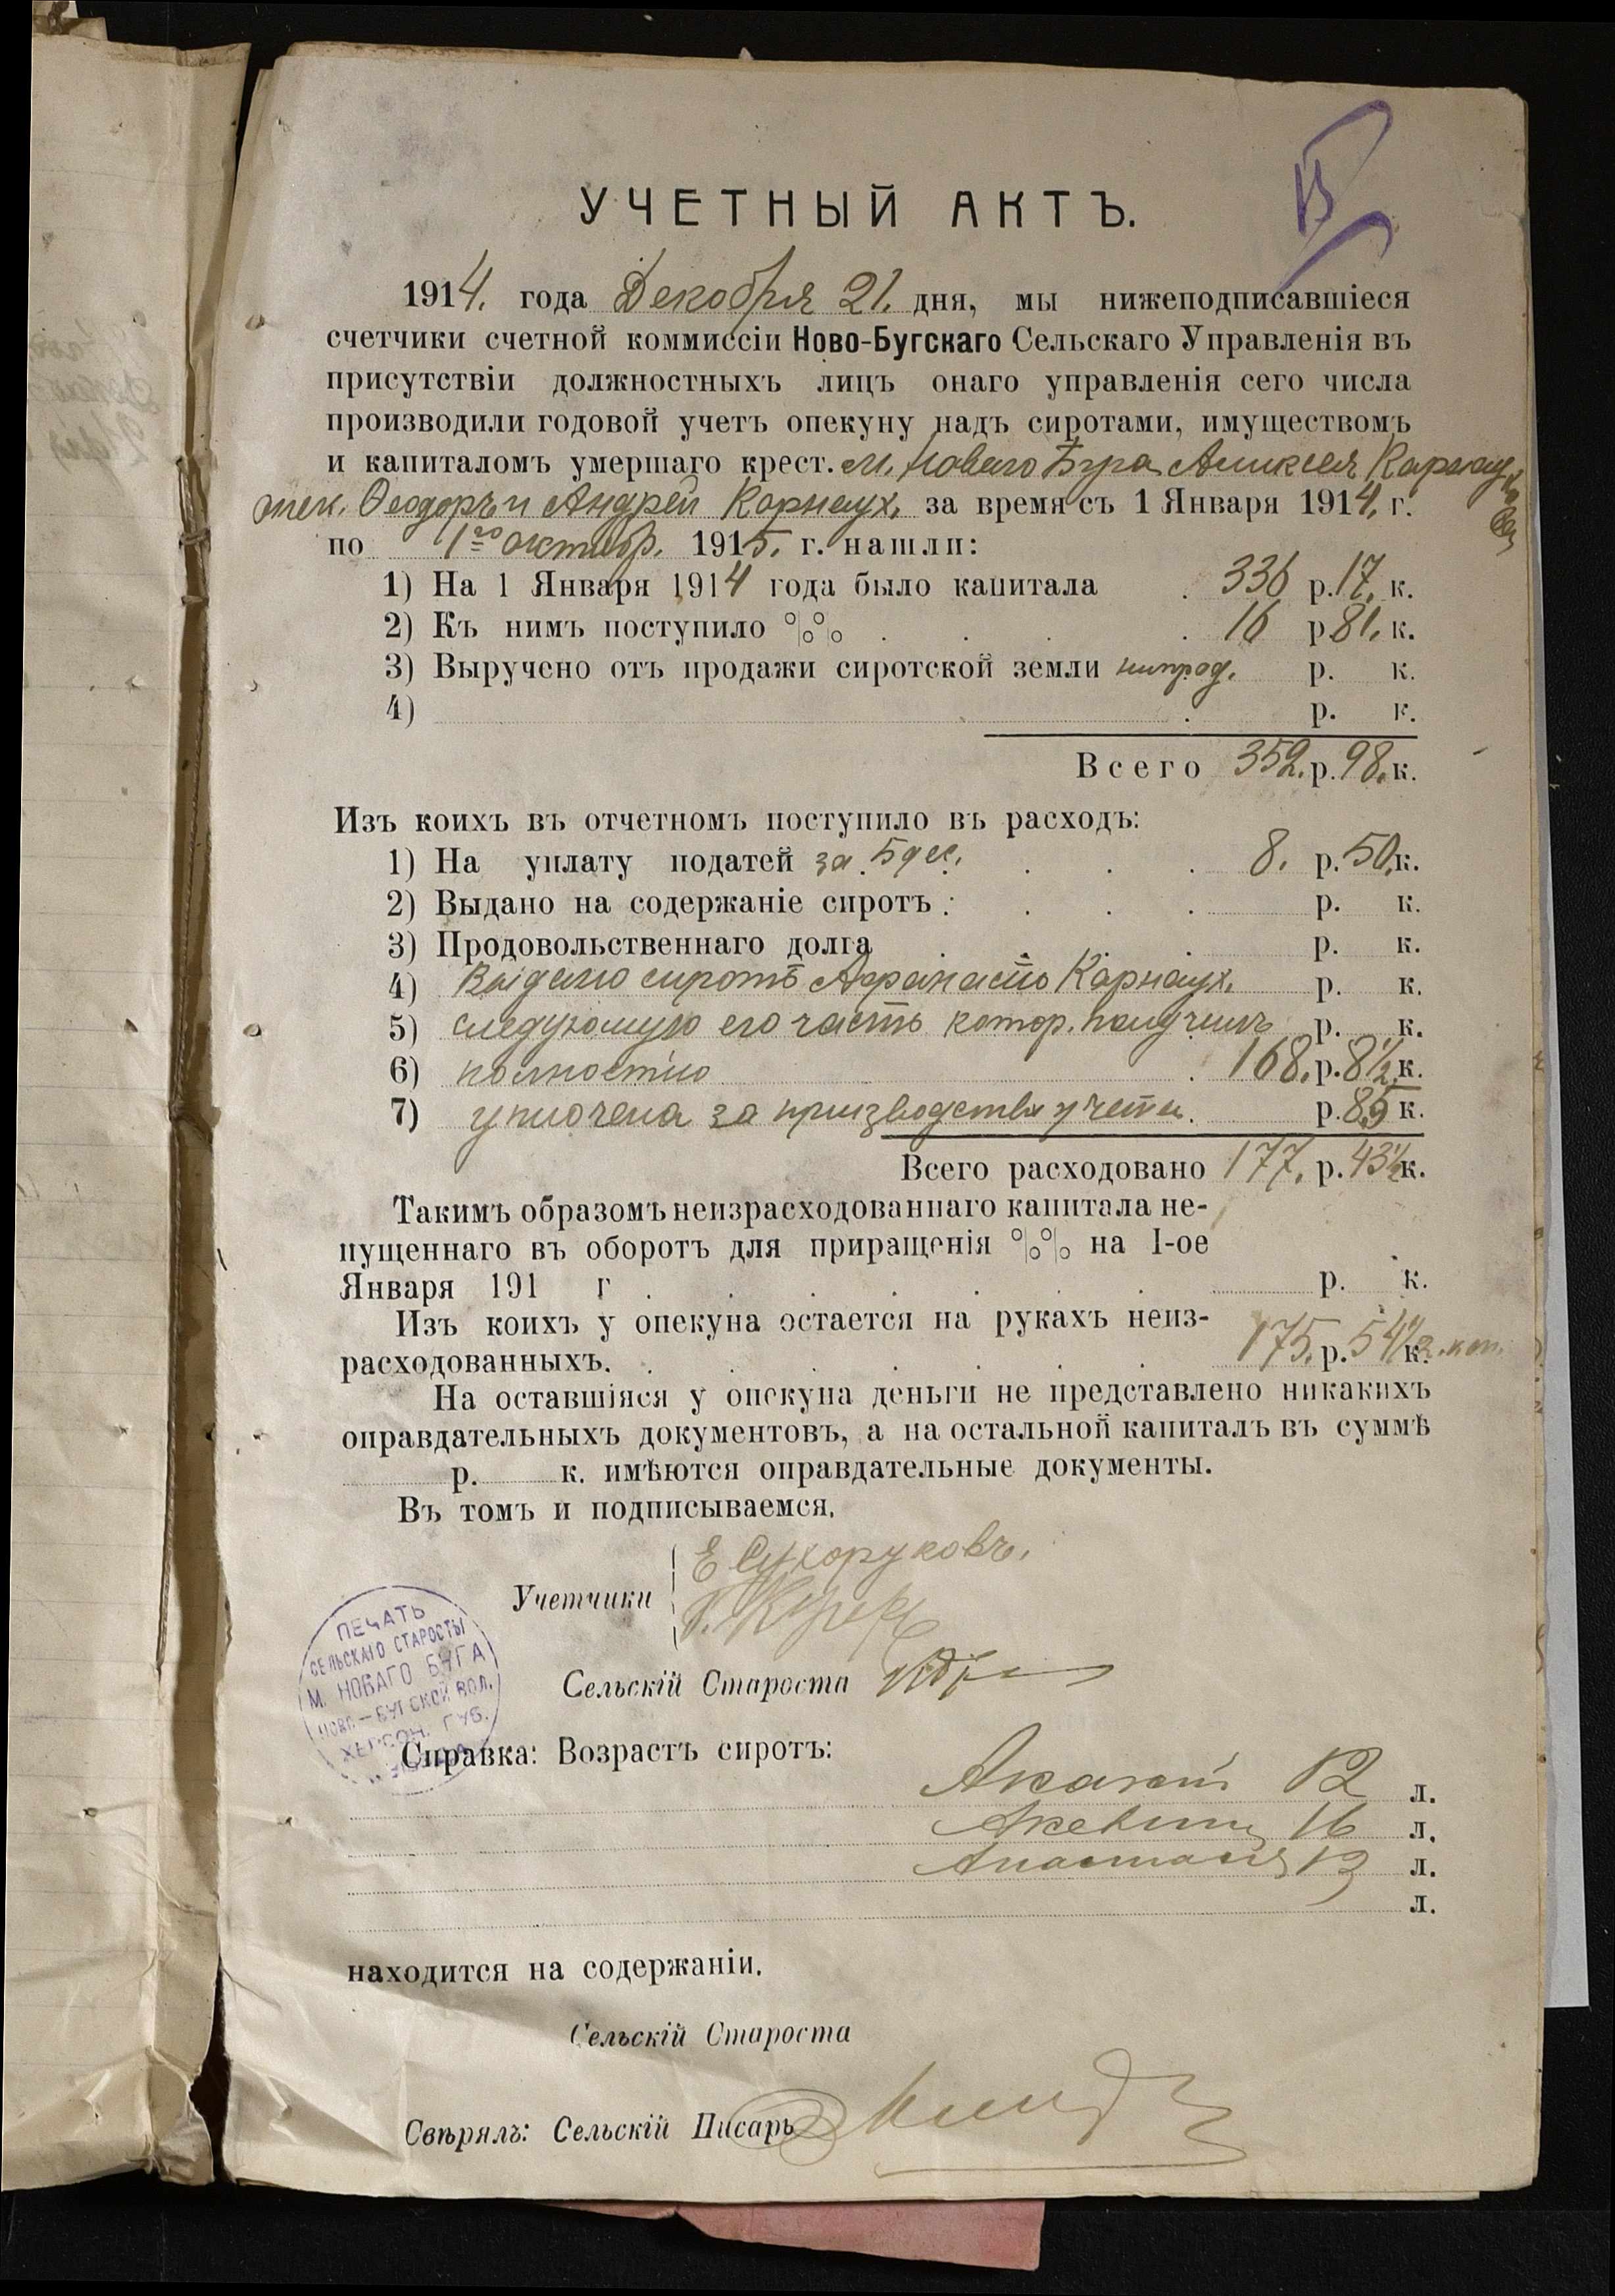 УЧЕТНЫЙ АКТЪ.
1914. года Декабря 21. дня, мы нижеподписавшіеся
счетчики счетной коммиссіи Ново-Бугскаго Сельскаго Управленія въ
присутствіи должностныхъ лицъ онаго управленія сего числа
производили годовой учетъ опекуну надъ сиротами, имуществомъ
и капиталомъ умершаго крест. м. Новаго Буга Алексея Карнаух
опек. Ѳеодоръ и Андрей Карнаух. за время съ 1 Января 1914. г.
по 1го октябр. 1915. г. нашли:
1) На 1 Января 1914 года было капитала 336 р. 17. к.
2) Къ нимъ поступило %% 16 р 81. к.
3) Выручено отъ продажи сиротской земли р. к.
4) р. к.
Всего 352. р. 98. к.
Изъ коихъ въ отчетномъ поступило въ расходъ:
1) На уплату податей за 5 дес. 8. р. 50. к.
2) Выдано на содержаніе сиротъ р. к.
3) Продовольственнаго долга р. к.
4) Выдано сиротѣ Афанасію Карнаух. р. к.
5) следующую его часть котор. получилъ р. к.
6) полностію 168. р. 8½ к.
7) уплочена за производства учета. р. 85 к.
Всего расходовано 177. р. 43½ к.
Такимъ образомъ неизрасходованнаго капитала не-
пущеннаго въ оборотъ для приращенія %% на 1-ое
Января 191 г р. к.
Изъ коихъ у опекуна остается на рукахъ неиз-
расходованныхъ. 175. р. 54½ к. коп.
На оставшіяся у опекуна деньги не представлено никакихъ
оправдательныхъ документовъ, а на остальной капиталъ въ суммѣ
р. к. имѣются оправдательные документы.
Въ томъ и подписываемся.
Е Сухоруковъ.
Учетчики
Сельскій Староста
ПЕЧАТЬ
СЕЛЬСКАГО СТАРОСТЫ
М. НОВАГО БУГА
НОВО-БУГСКОЙ ВОЛ.
ХЕРСОН. ГУБ.
Справка: Возрастъ сиротъ:
12 л.
16 л.
Анастасія 13 л.
л.
находится на содержаніи.
Сельскій Староста
Свѣрялъ: Сельскій Писарь